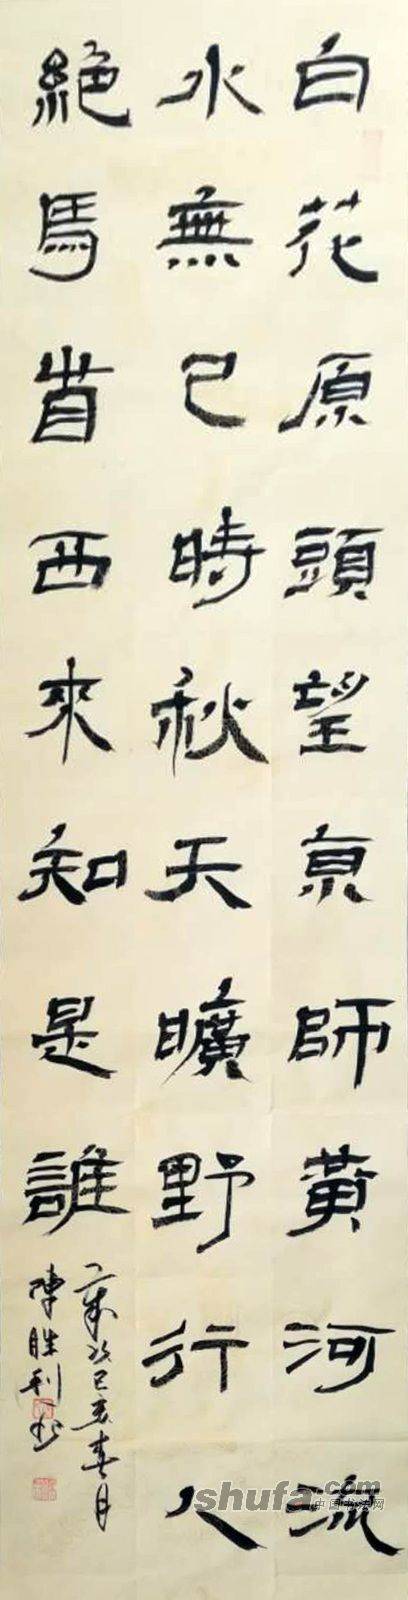 白花原頭望京師黄河流
水無已時秋天曠野行人
絕馬首西來知是誰
歲次己亥春月
陳勝利書
shufa.com
中国书法网